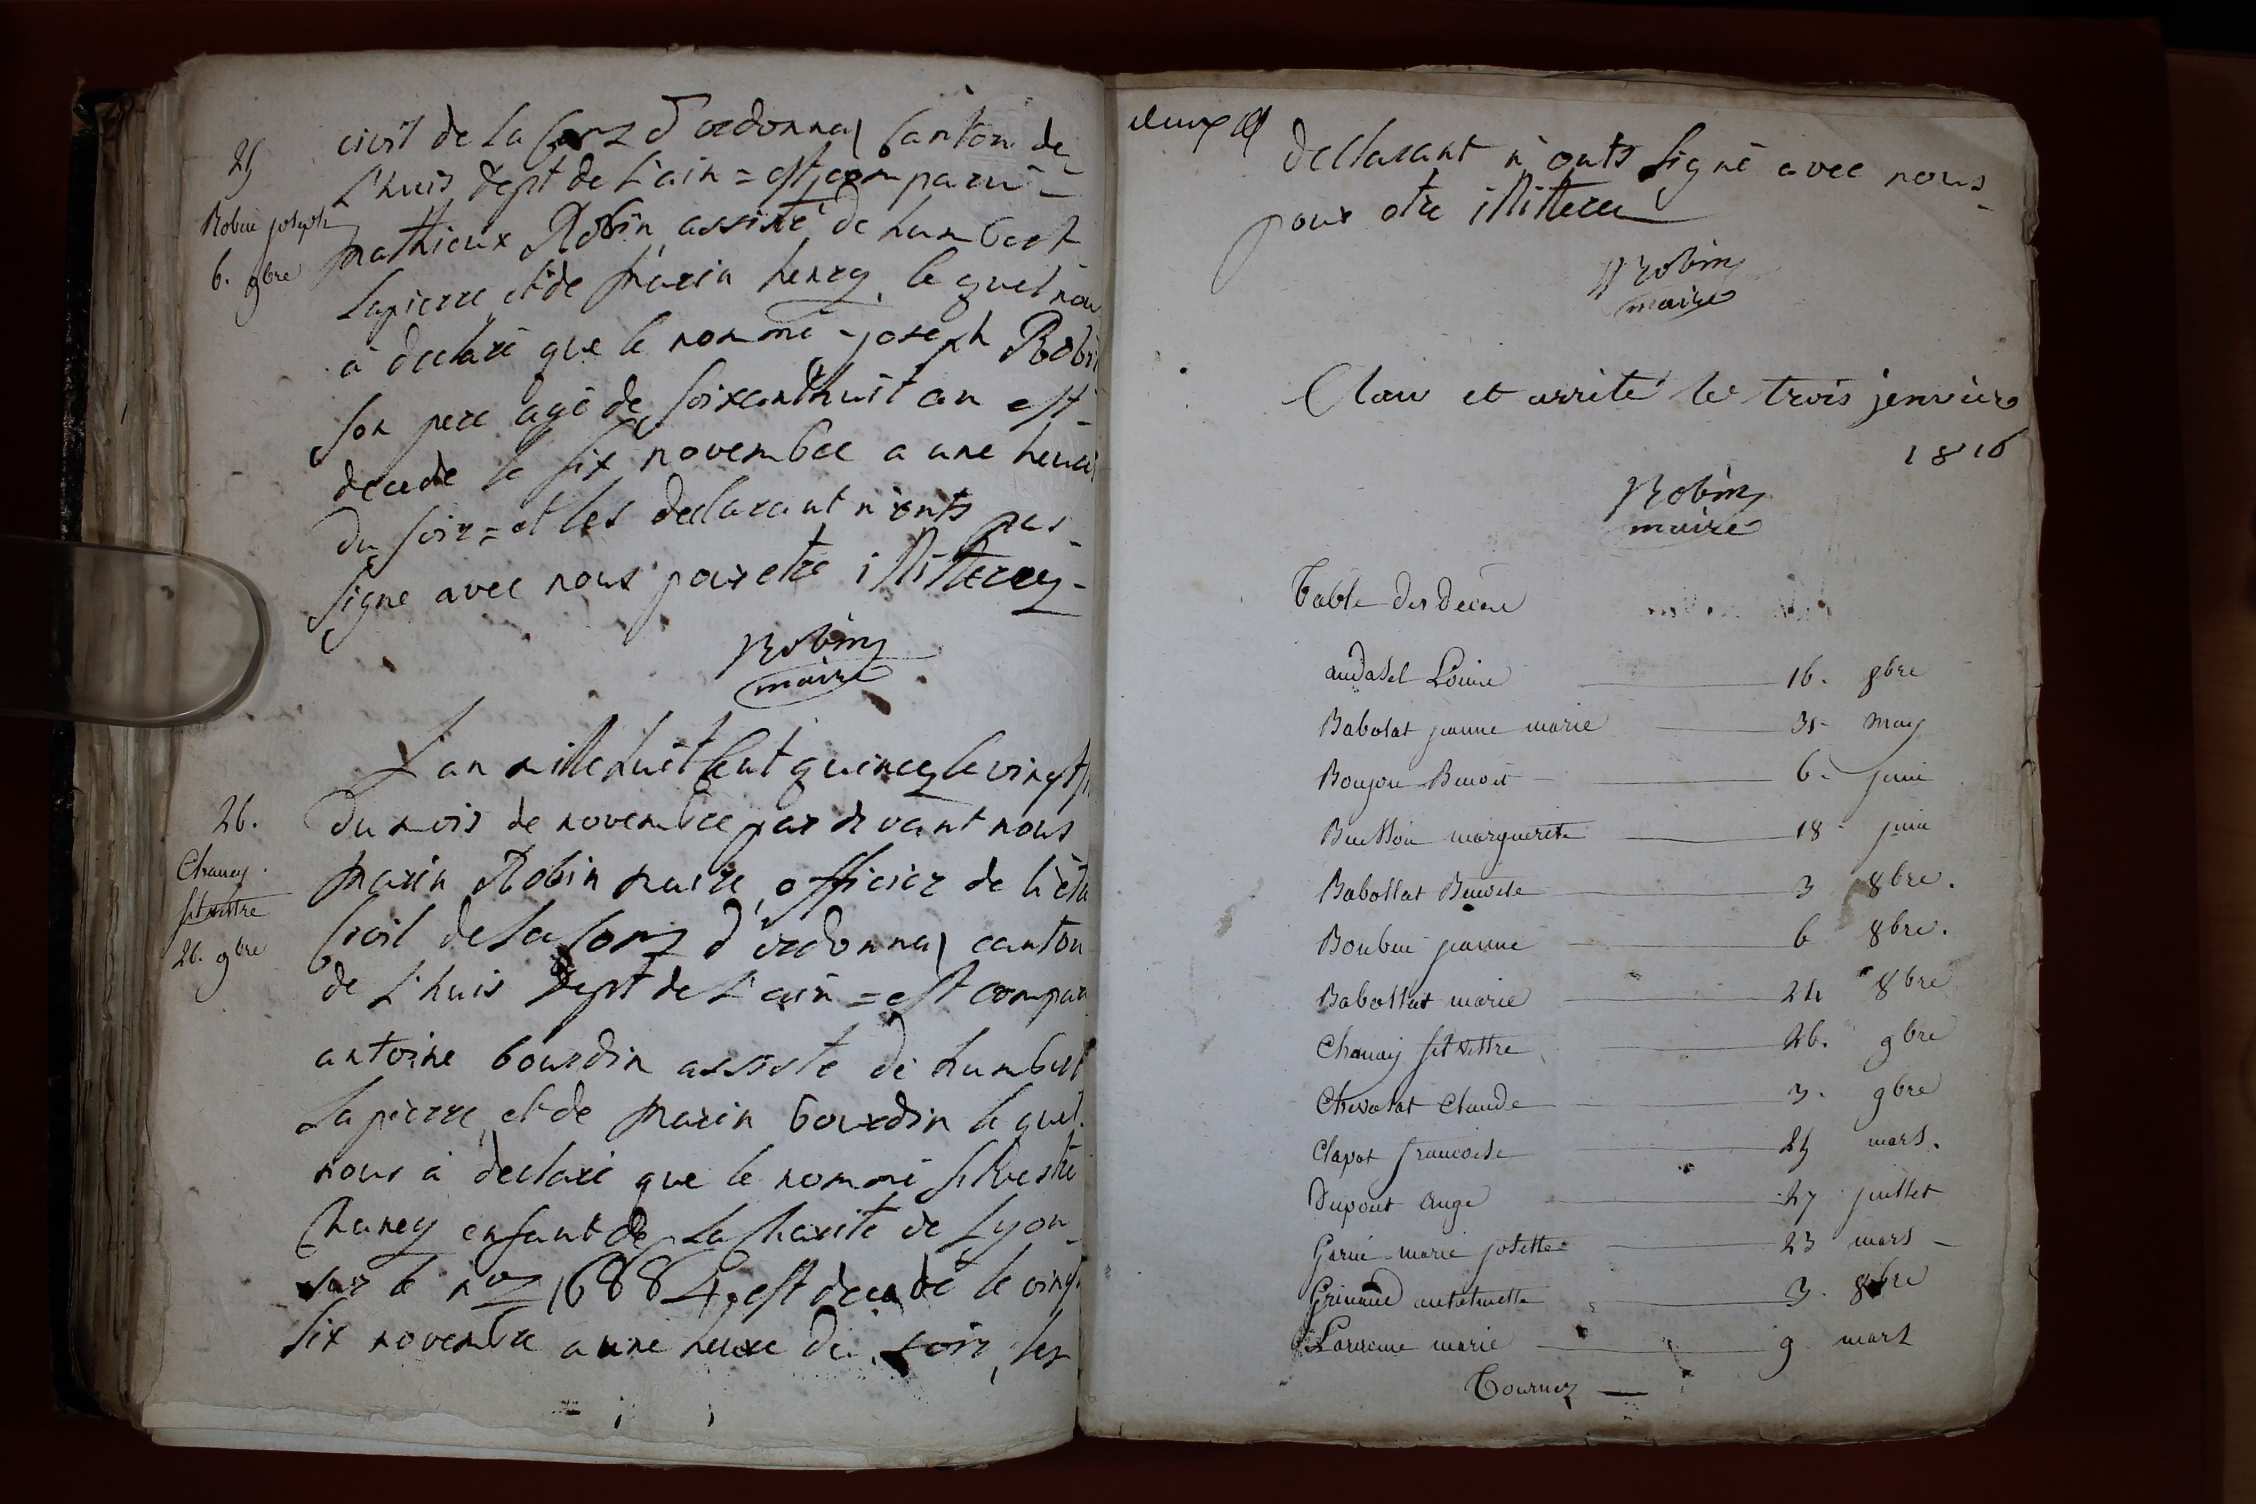 25
Robin joseph
6. 9bre
civil de la Com d'ordonnas Canton de
L'huis dept de L'ain = est comparu
mathieux Robin assisté de humbert
Lapierre et de marin henry, le quel nou
à declaré que le nommé joseph Robin
son pere agé de soixanthuit an est
decede le six novembre a une heure
du soir = et les declarant n'onts pas
signe avec nous pour etre illiterez
Robin
maire
26.
Chaney
silvestre
26. 9bre
L'an mille huit Cent quincz le vingt
du mois de novembre par devant nous
marin Robin maire, officier de l'éta
Civil de la Com d'ordonnas canton
de L'huis dept de L'ain = est compar
antoine bourdin assiste de humbert
Lapierre, et de marin bourdin le quel
nous à declaré que le nommé silvestre
Chaney enfant de La Charité de Lyon
sur le no 16884, est decedé le vingt
six novembre a une heure du soir, les
deux
declarant n'onts signé avec nous
pour etre illiterer
Robin
maire
Clau et arrité le trois jenvier
1816
Robin
maire
Table des Deces
audasel Louise 16. 8bre
Babolat jeanne marie 31 may
Boujon Benoit 6 juin
Buisson marguerite 18 juin
Babollat Benoite 3 8bre.
jeanne 6 8bre.
Babollat marie 24 8bre
Chanay silvestre 26. 9bre
Chevolat Claude 3. 9bre
Clapot francoise 25 mars.
Dupont Ange 27 juillet
Garin marie josette 23 mars
Grimaud antoinette 3. 8bre
marie 9 mars
Tournez